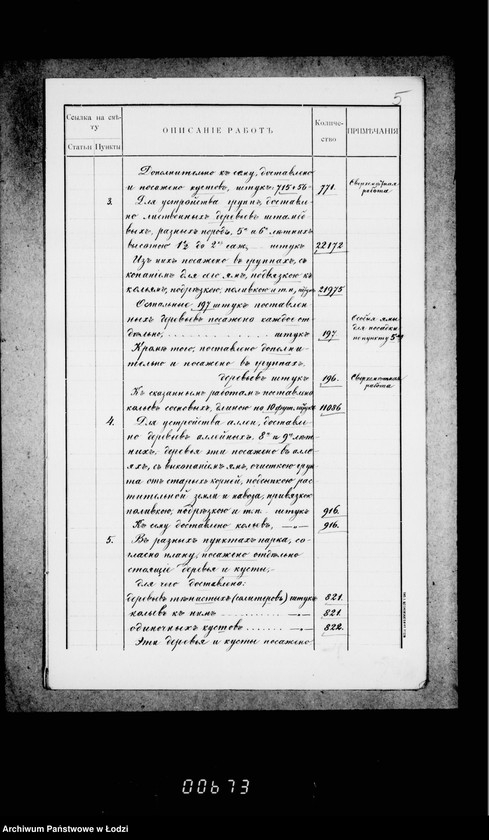 5
Ссылка на смѣ-
ту
Статьи Пункты
ОПИСАНІЕ РАБОТЪ
Количе-
ство
ПРИМѢЧАНІЯ
Дополнительно къ сему, доставлено
и посажено кустовъ, штукъ: 715+56- 771. Сверхсмѣтная
работа
3. Для устройства группъ, доставле-
но лиственныхъ деревьевъ штамбо-
выхъ, разныхъ породъ, 5и и 6и лѣтнихъ
высотою 1½ до 2хъ саж. штукъ 22172
Изъ нихъ посажено въ группахъ, съ
копаніемъ для сего ямъ, подвязкою къ
кольямъ, подрѣзкою, поливкою и т.п., штукъ 21975
Остальные 197 штукъ поставлен-
ныхъ деревьевъ посажены каждое от-
дѣльно, . . . . . . . . . штукъ 197. Особыя ямы
для посадки
по пункту 5му
Кромѣ того, поставлено дополни-
тельно и посажено въ группахъ,
деревьевъ штукъ 196. Сверхсмѣтная
работа
Къ сказаннымъ работамъ поставлено
кольевъ сосновыхъ, длиною по 10 фут. штукъ 11086
4. Для устройства аллеи, доставле-
но деревьевъ аллейныхъ 8и и 9и лѣт-
нихъ. деревья эти посажены въ алле-
яхъ, съ выкопаніемъ ямъ, очисткою грун-
та отъ старыхъ корней, подсыпкою рас-
тительной земли и навоза, привязкою
поливкою, подрѣзкою и т.п. штукъ 916.
Къ сему доставлено кольевъ, —„— 916.
5. Въ разныхъ пунктахъ парка, со-
гласно плану, посажено отдѣльно
стоящіе деревья и кусты,-
для чего доставлено:
деревьевъ тѣнистыхъ (солитеровъ) штукъ 821.
кольевъ къ нимъ . . . . . . —„— 821.
одиночныхъ кустовъ . . . . . . —„— 822.
Эти деревья и кусты посажено
00673
Archiwum Państwowe w Łodzi